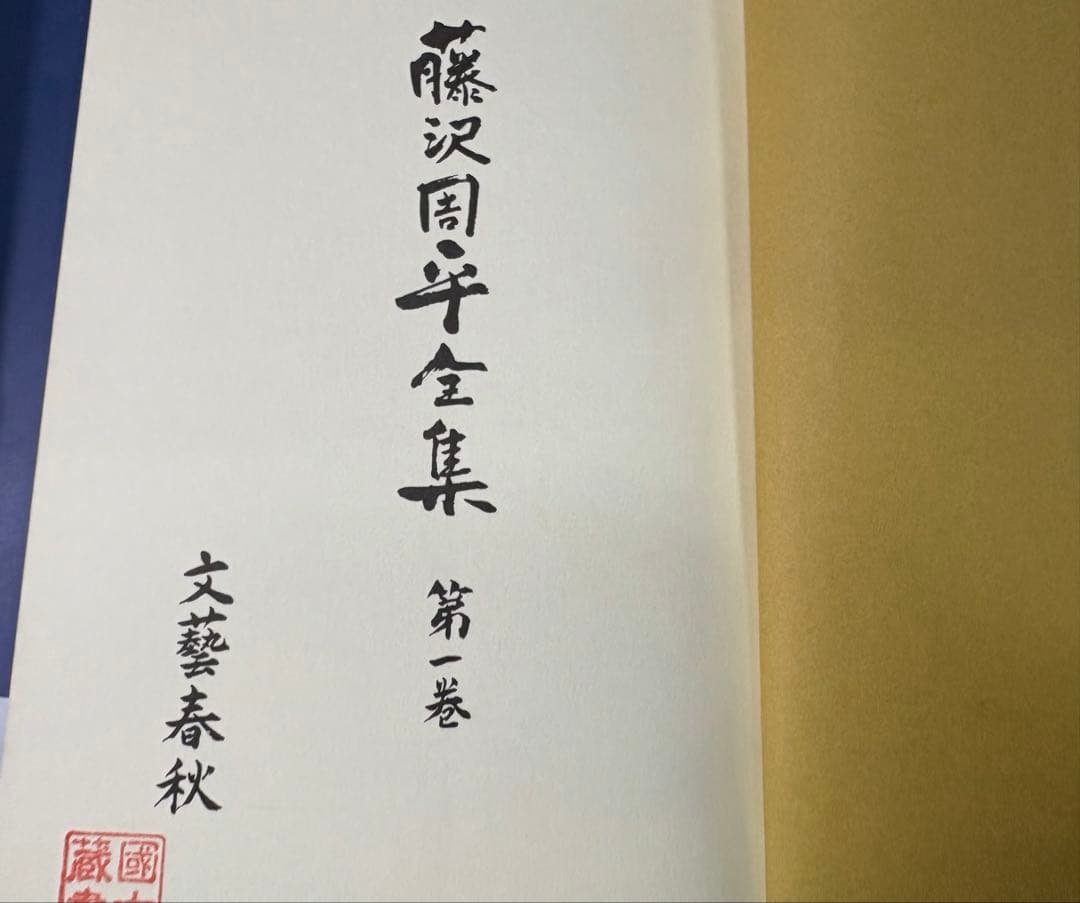 藤沢周平全集 第一巻
文藝春秋
國
蔵